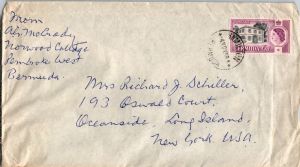 From
McGrady
Norwood Cottage
Pembroke West
Bermuda.
Mrs Richard J. Schiller,
193 Oswald Court,
Oceanside, Long Island,
New York, USA.
BERMUDA